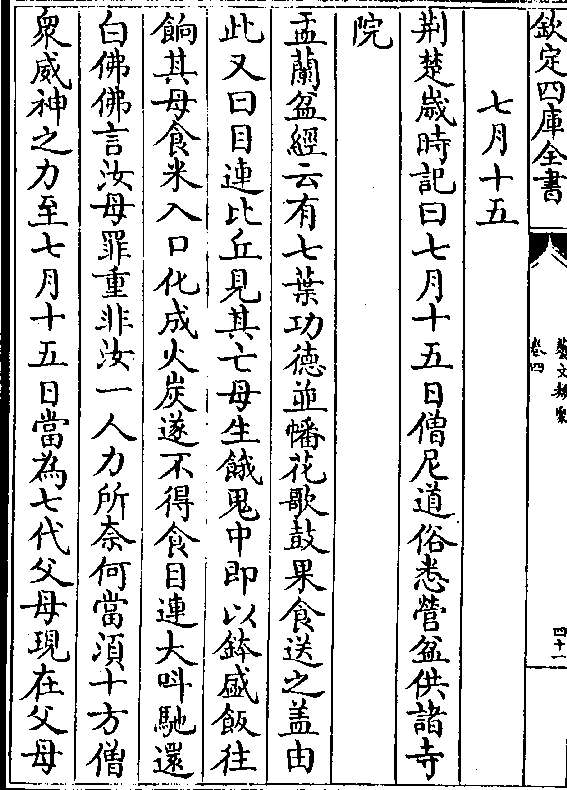 欽定四庫全書
藝文類聚
卷四
四十一
七月十五
荆楚歲時記曰七月十五日僧尼道俗悉營盆供諸寺
院
盂蘭盆經云有七葉功德並幡花歌鼓果食送之盖由
此又曰目連比丘見其亡母生餓鬼中即以鉢盛飯往
餉其母食米入口化成火炭遂不得食目連大叫馳還
白佛佛言汝母罪重非汝一人力所奈何當湏十方僧
衆威神之力至七月十五日當為七代父母現在父母